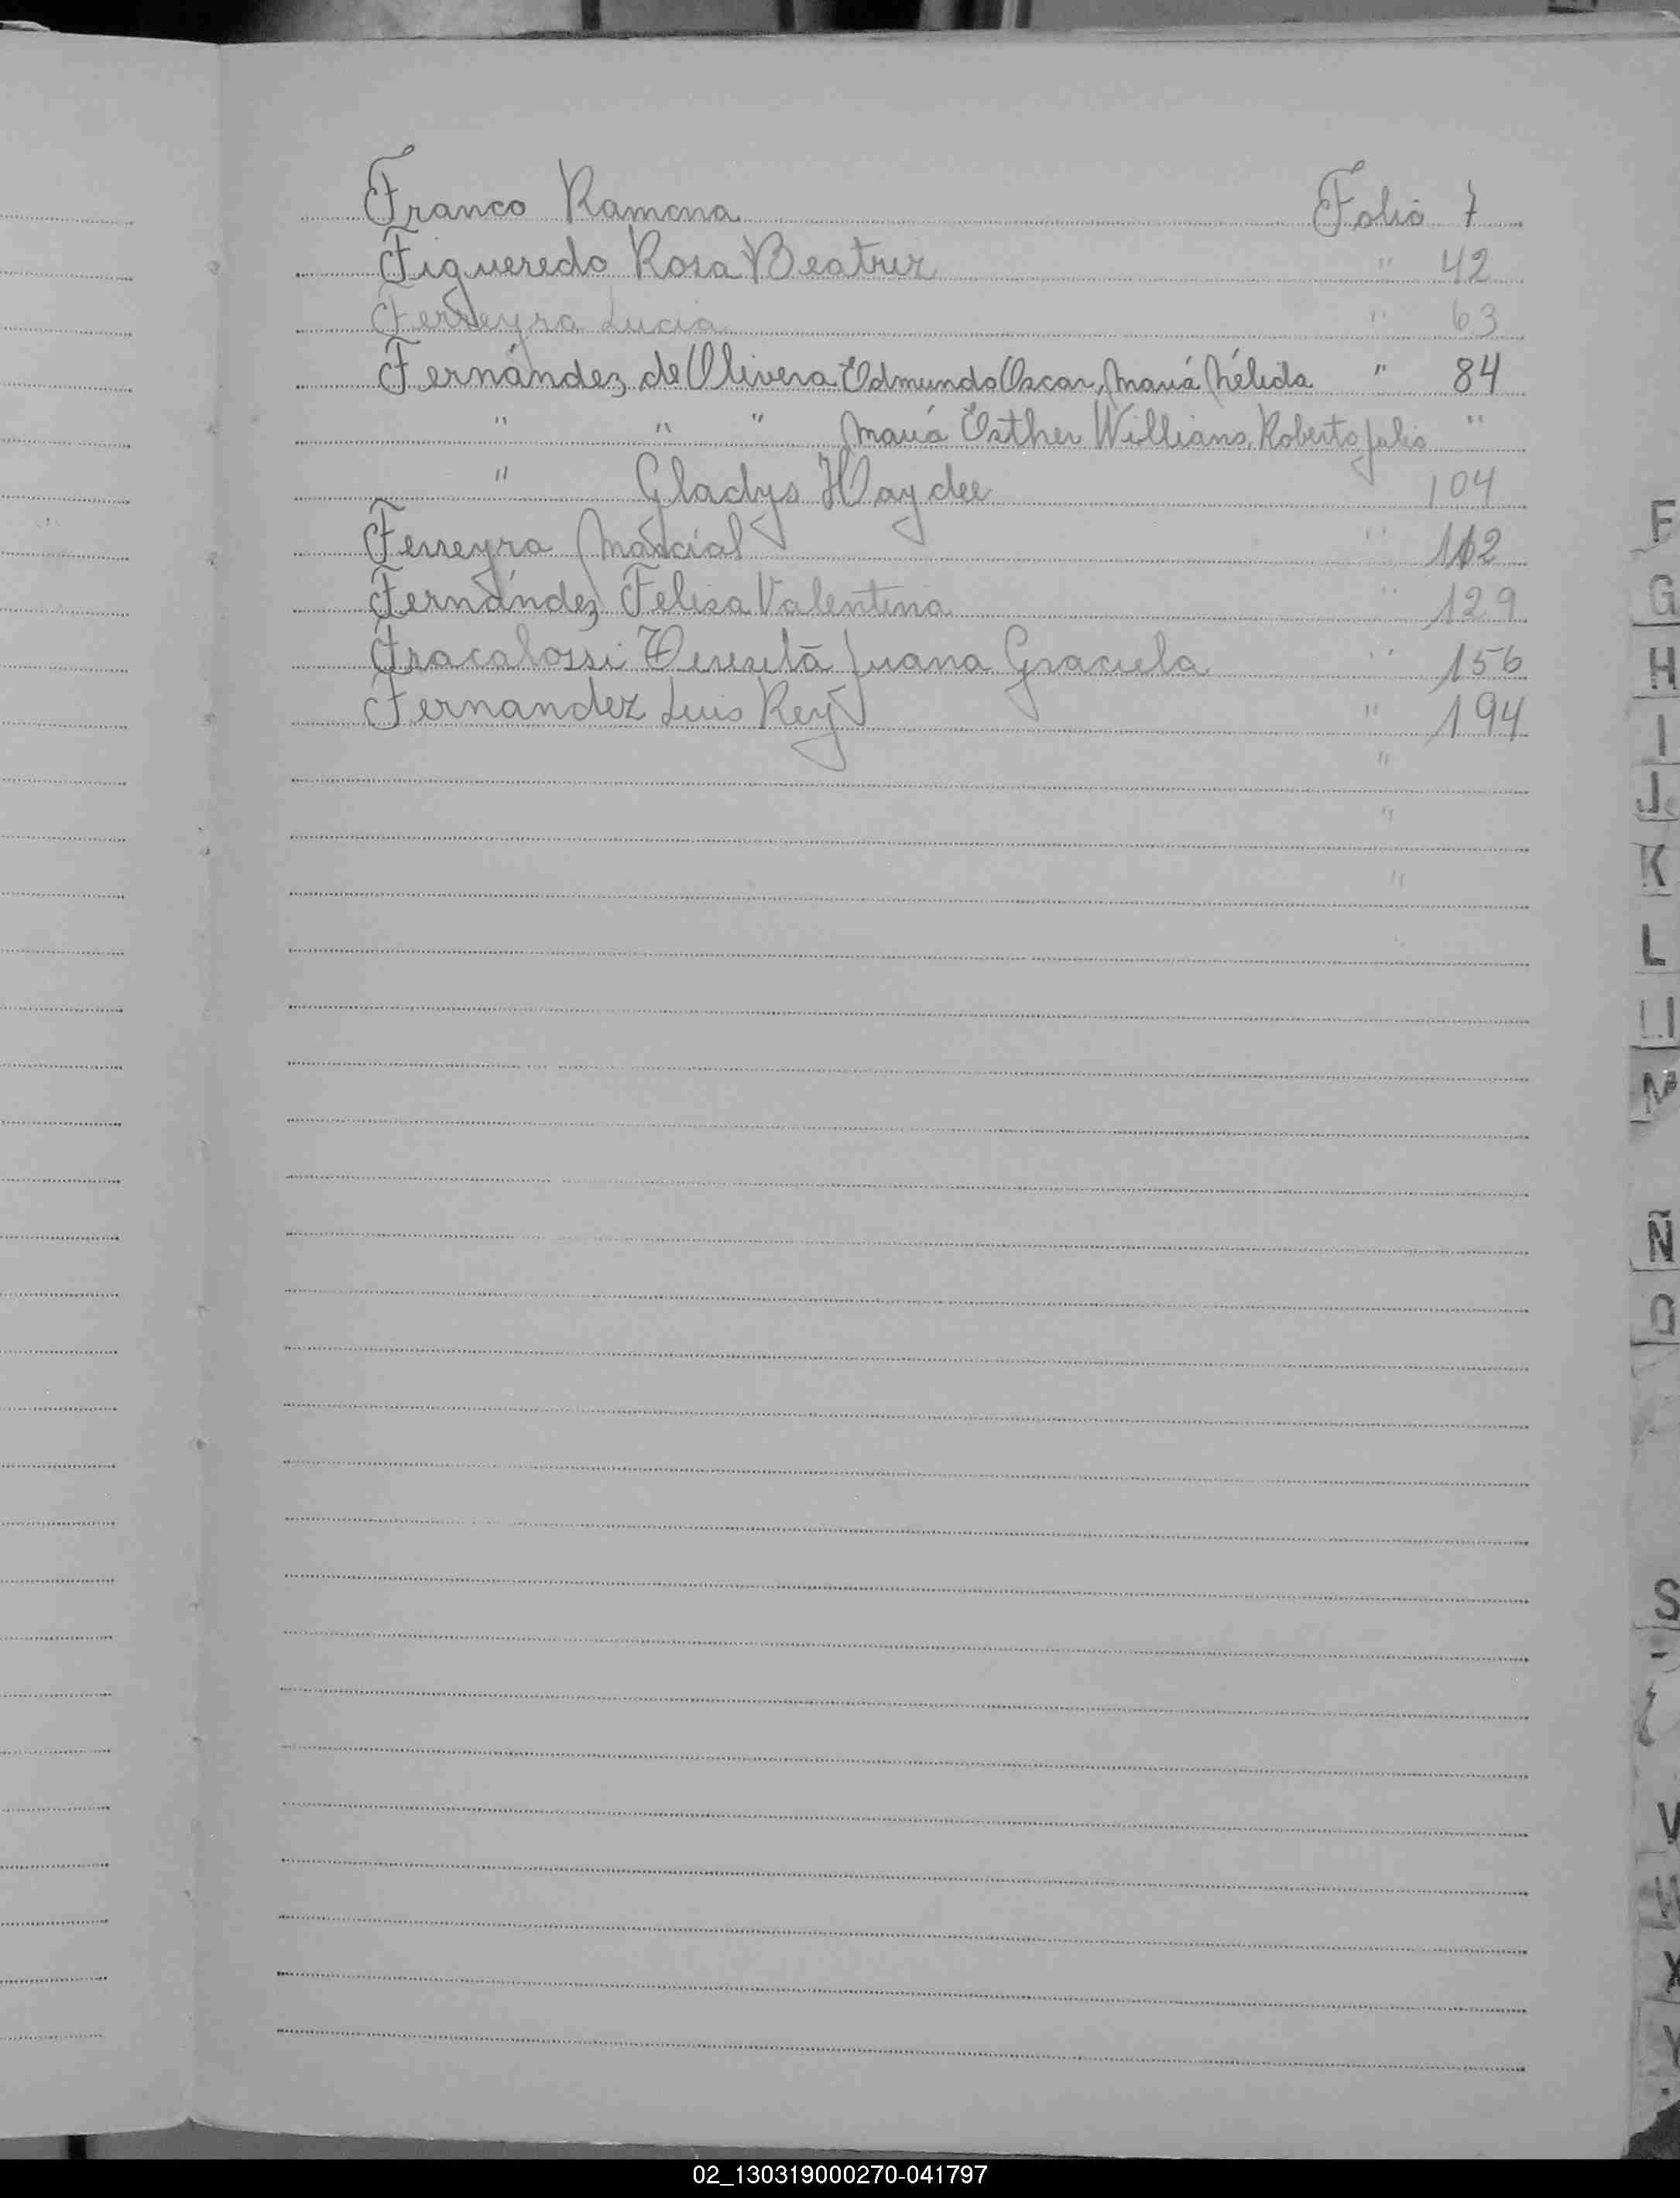 Franco Ramona Folio 7
Figueredo Rosa Beatriz " 42
Ferreyra Lucia " 63
Fernández de Olivera Edmundo Oscar, María Nélida " 84
" " " María Esther Willians, Roberto Julio "
" Gladys Haydee 104
Ferreyra Marcial " 112
Fernández Felisa Valentina " 129
Fracalossi Juana Graciela " 156
Fernandez Luis Rey " 194
"
"
"
F
G
H
I
J
K
L
N
Ñ
O
S
V
X
Y
02_130319000270-041797